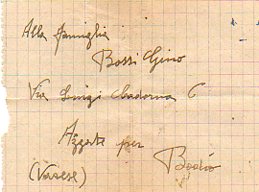 Alla famiglia
Bossi Gino
Via Luigi Cadorna 6
Azzate per
Bodio
(Varese)